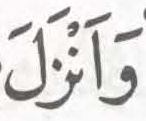 وَاَنْزَلَ